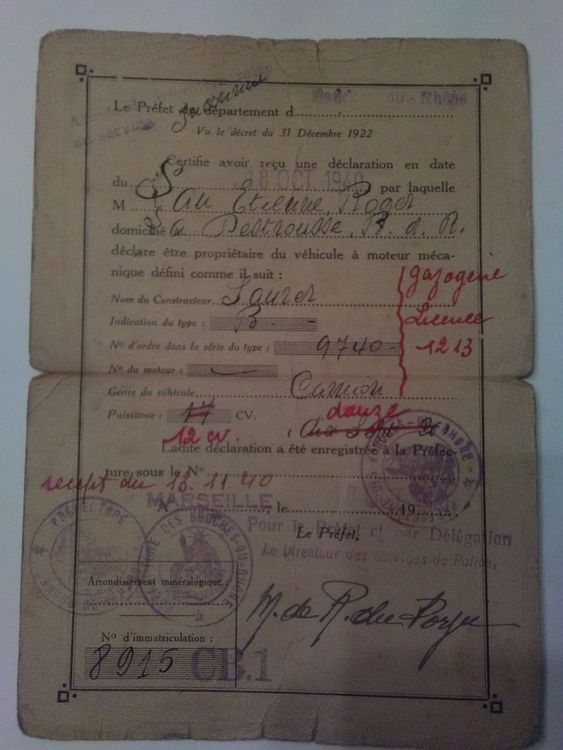 Le Préfet du département d Bouches-du-Rhône
Vu le décret du 31 Décembre 1922
Certifie avoir reçu une déclaration en date
du 18 OCT 1940 par laquelle
M Etienne Roger
domicilié à Destrousse B. d. R.
déclare être propriétaire du véhicule à moteur méca-
nique défini comme il suit :
gazogène
Licence
1213
Nom du Constructeur Saurer
Indication du type : B
N° d'ordre dans la série du type : 9740
N° du moteur :
Genre du véhicule Camion
Puissance : 17 CV.
douze
12 cv.
Ladite déclaration a été enregistrée à la Préfec-
ture sous le N°
recept du 18.11.40
A MARSEILLE, le 18 19
Pour le Préfet et par Délégation
Le Préfet,
Le Directeur des Services de Police,
PREFECTURE
DES BOUCHES-DU-RHONE
Arrondissement minéralogique :
N° d'immatriculation :
8915 CB.1